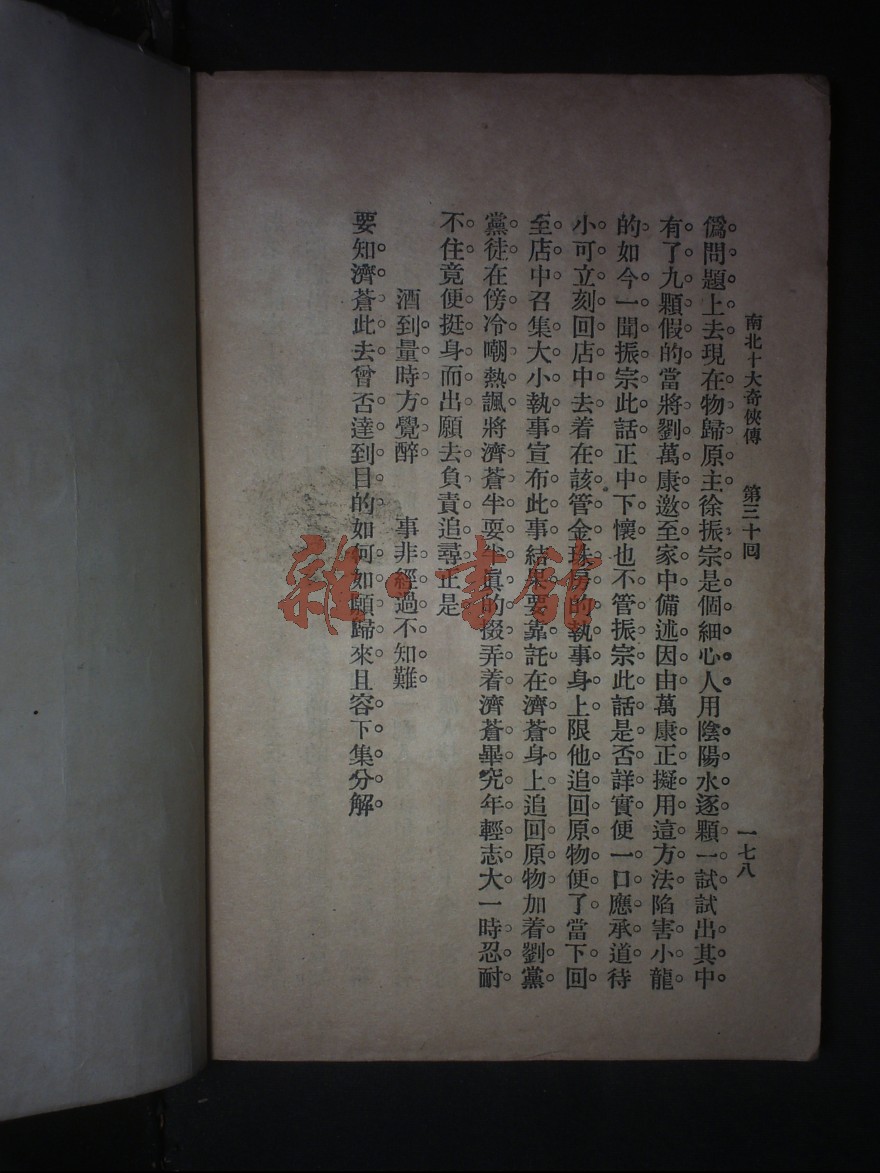 南北十大奇俠傳 第三十回 一七八
僞問題上去現在物歸原主徐振宗是個細心人用陰陽水逐顆一試試出其中
有了九顆假的當將劉萬康邀至家中備述因由萬康正擬用這方法陷害小龍
的如今一聞振宗此話正中下懷也不管振宗此話是否詳實便一口應承道待
小可立刻回店中去着在該管金珠房的執事身上限他追回原物便了當下回
至店中召集大小執事宣布此事結果要靠託在濟蒼身上追回原物加着劉黨
黨徒在傍冷嘲熱諷將濟蒼半耍半眞的掇弄着濟蒼畢究年輕志大一時忍耐
不住竟便挺身而出願去負責追尋正是
酒到量時方覺醉 事非經過不知難
要知濟蒼此去曾否達到目的如何如願歸來且容下集分解
雜·書館